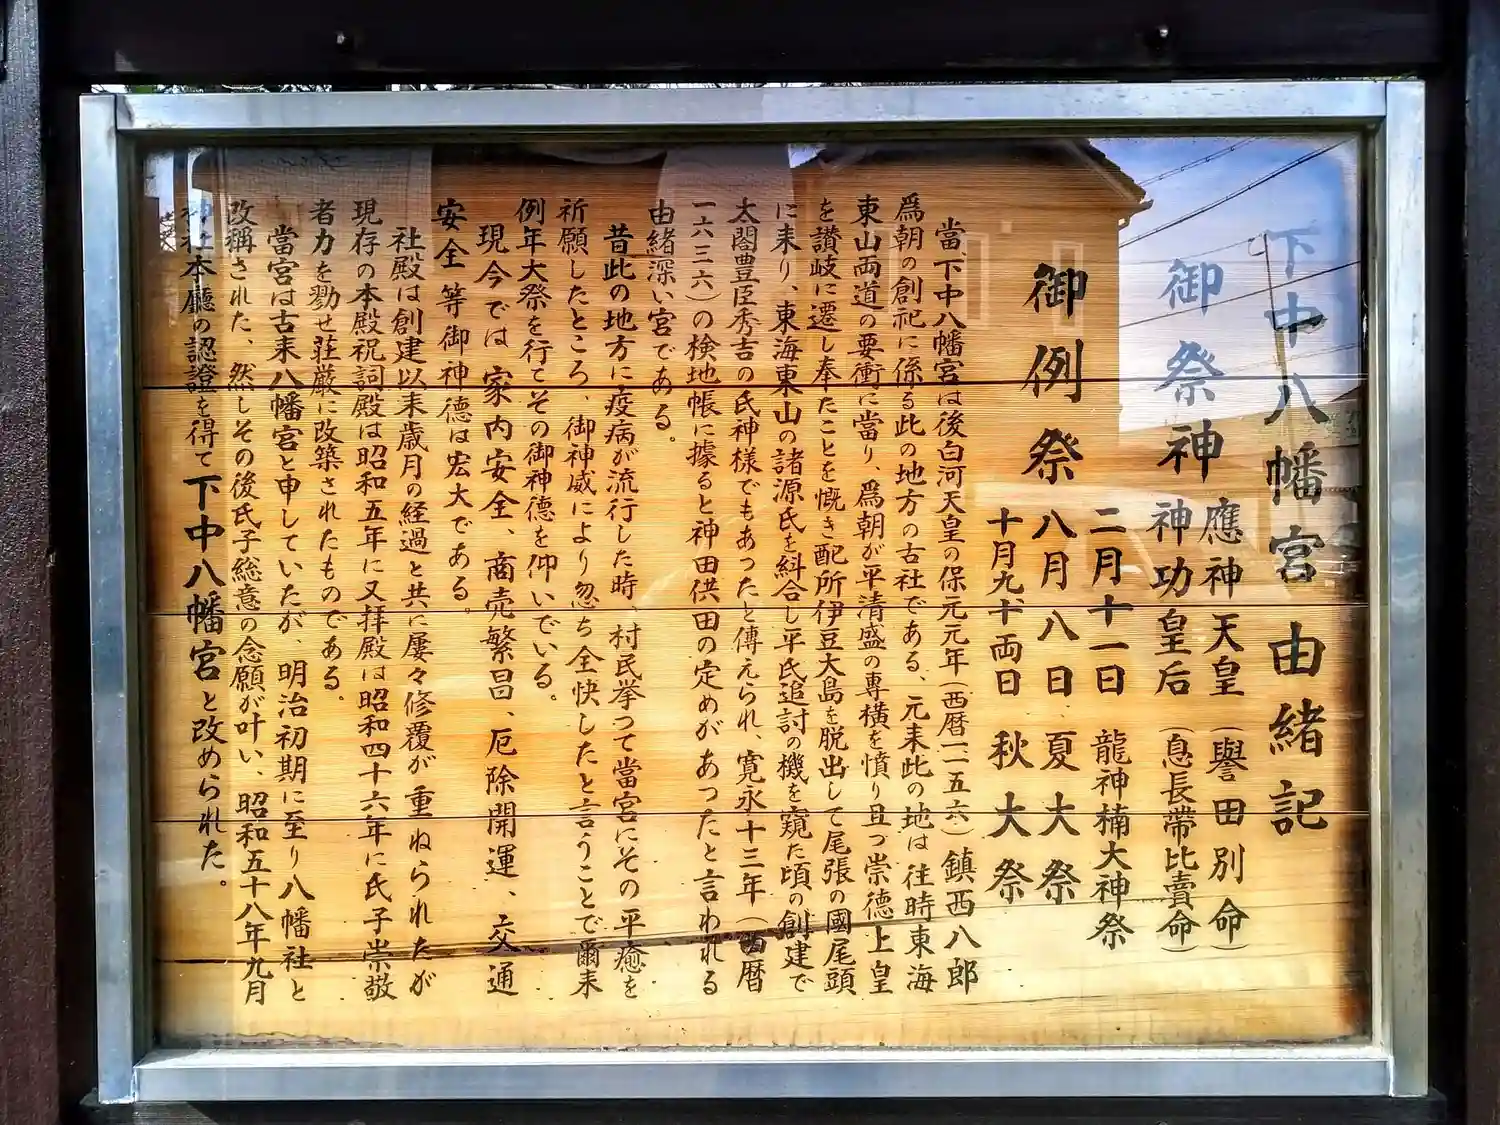 下中八幡宮由緒記
御祭神 應神天皇（譽田別命）
神功皇后（息長帶比賣命）
御例祭 二月十一日 龍神楠大神祭
八月八日、夏大祭
十月九十両日 秋大祭
當下中八幡宮は後白河天皇の保元元年（西暦一一五六）鎮西八郎
爲朝の創祀に係る此の地方の古社である、元来此の地は往時東海
東山両道の要衝に當り、爲朝が平清盛の専横を憤り且つ崇徳上皇
を讃岐に遷し奉たことを慨き配所伊豆大島を脱出して尾張の國尾頭
に来り、東海東山の諸源氏を糾合し平氏追討の機を窺た頃の創建で
太閤豊臣秀吉の氏神様でもあったと傳えられ、寛永十三年（西暦
一六三六）の検地帳に據ると神田供田の定めがあったと言われる
由緒深い宮である。
昔此の地方に疫病が流行した時、村民挙つて當宮にその平癒を
祈願したところ、御神威により忽ち全快したと言うことで爾来
例年大祭を行てその御神徳を仰いでいる。
現今では家内安全、商売繁昌、厄除開運、交通
安全等御神徳は宏大である。
社殿は創建以来歳月の経過と共に屢々修覆が重ねられたが
現存の本殿祝詞殿は昭和五年に又拝殿は昭和四十六年に氏子崇敬
者力を勠せ荘厳に改築されたものである。
當宮は古来八幡宮と申していたが、明治初期に至り八幡社と
改稱された、然しその後氏子総意の念願が叶い、昭和五十八年九月
神社本廳の認證を得て下中八幡宮と改められた。